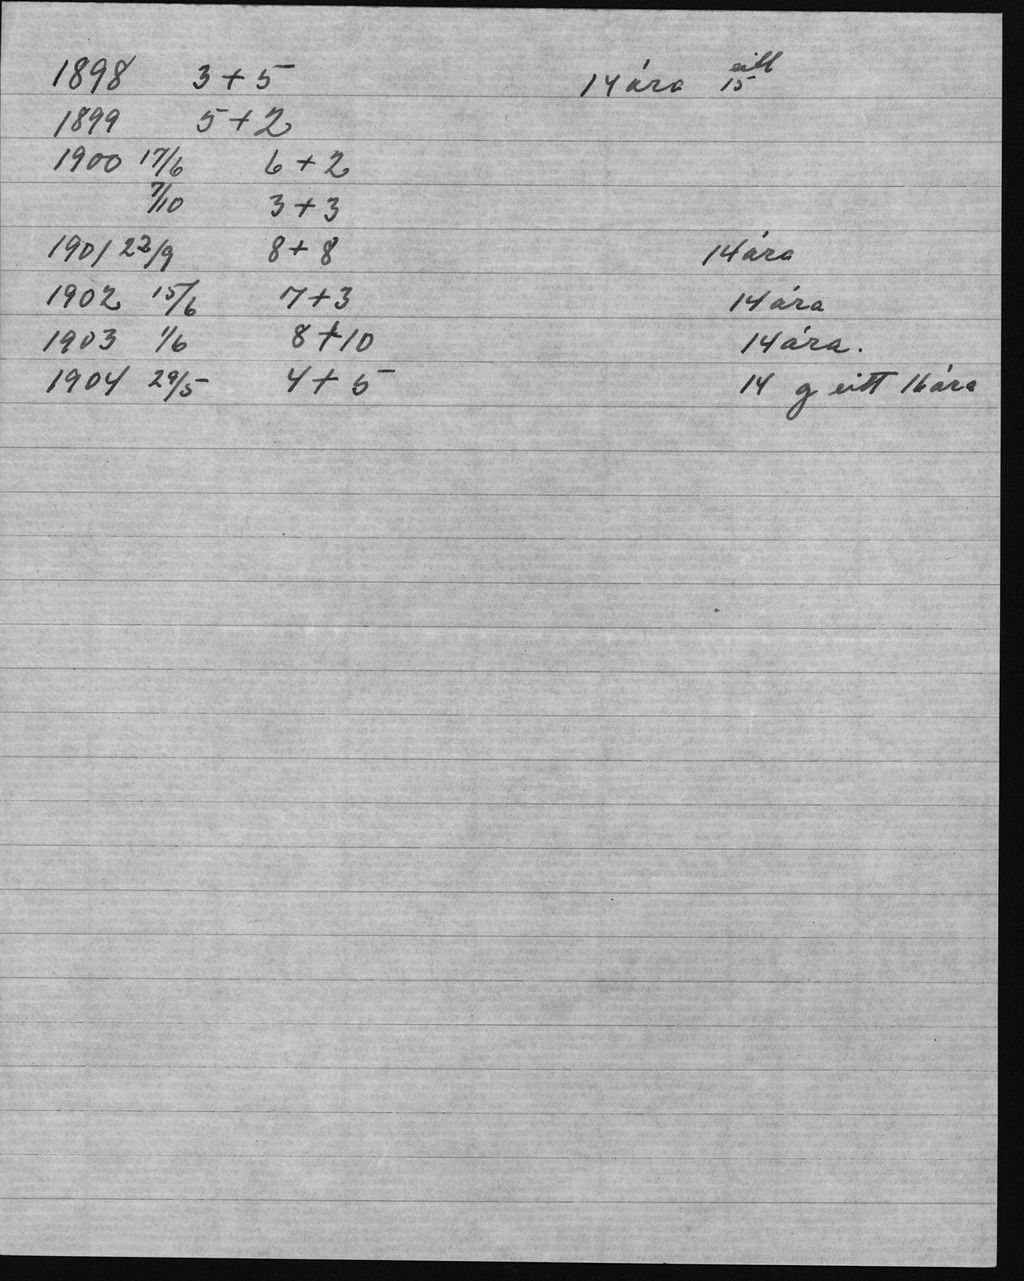 1898 3+5 14 ára eitt 15
1899 5+2
1900 17/6 6+2
7/10 3+3
1901 22/9 8+8 14 ára
1902 15/6 7+3 14 ára
1903 1/6 8+10 14 ára.
1904 29/5 4+5 14 g eitt 16 ára